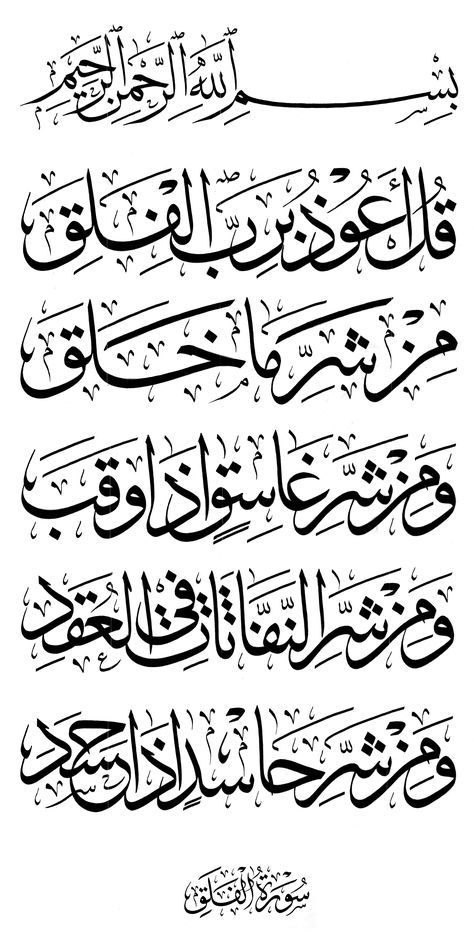 بِسْمِ اللّٰهِ الرَّحْمٰنِ الرَّحِيمِ
قُلْ أَعُوذُ بِرَبِّ الْفَلَقِ
مِنْ شَرِّ مَا خَلَقَ
وَمِنْ شَرِّ غَاسِقٍ إِذَا وَقَبَ
وَمِنْ شَرِّ النَّفَّاثَاتِ فِي الْعُقَدِ
وَمِنْ شَرِّ حَاسِدٍ إِذَا حَسَدَ
سُورَةُ الْفَلَقِ